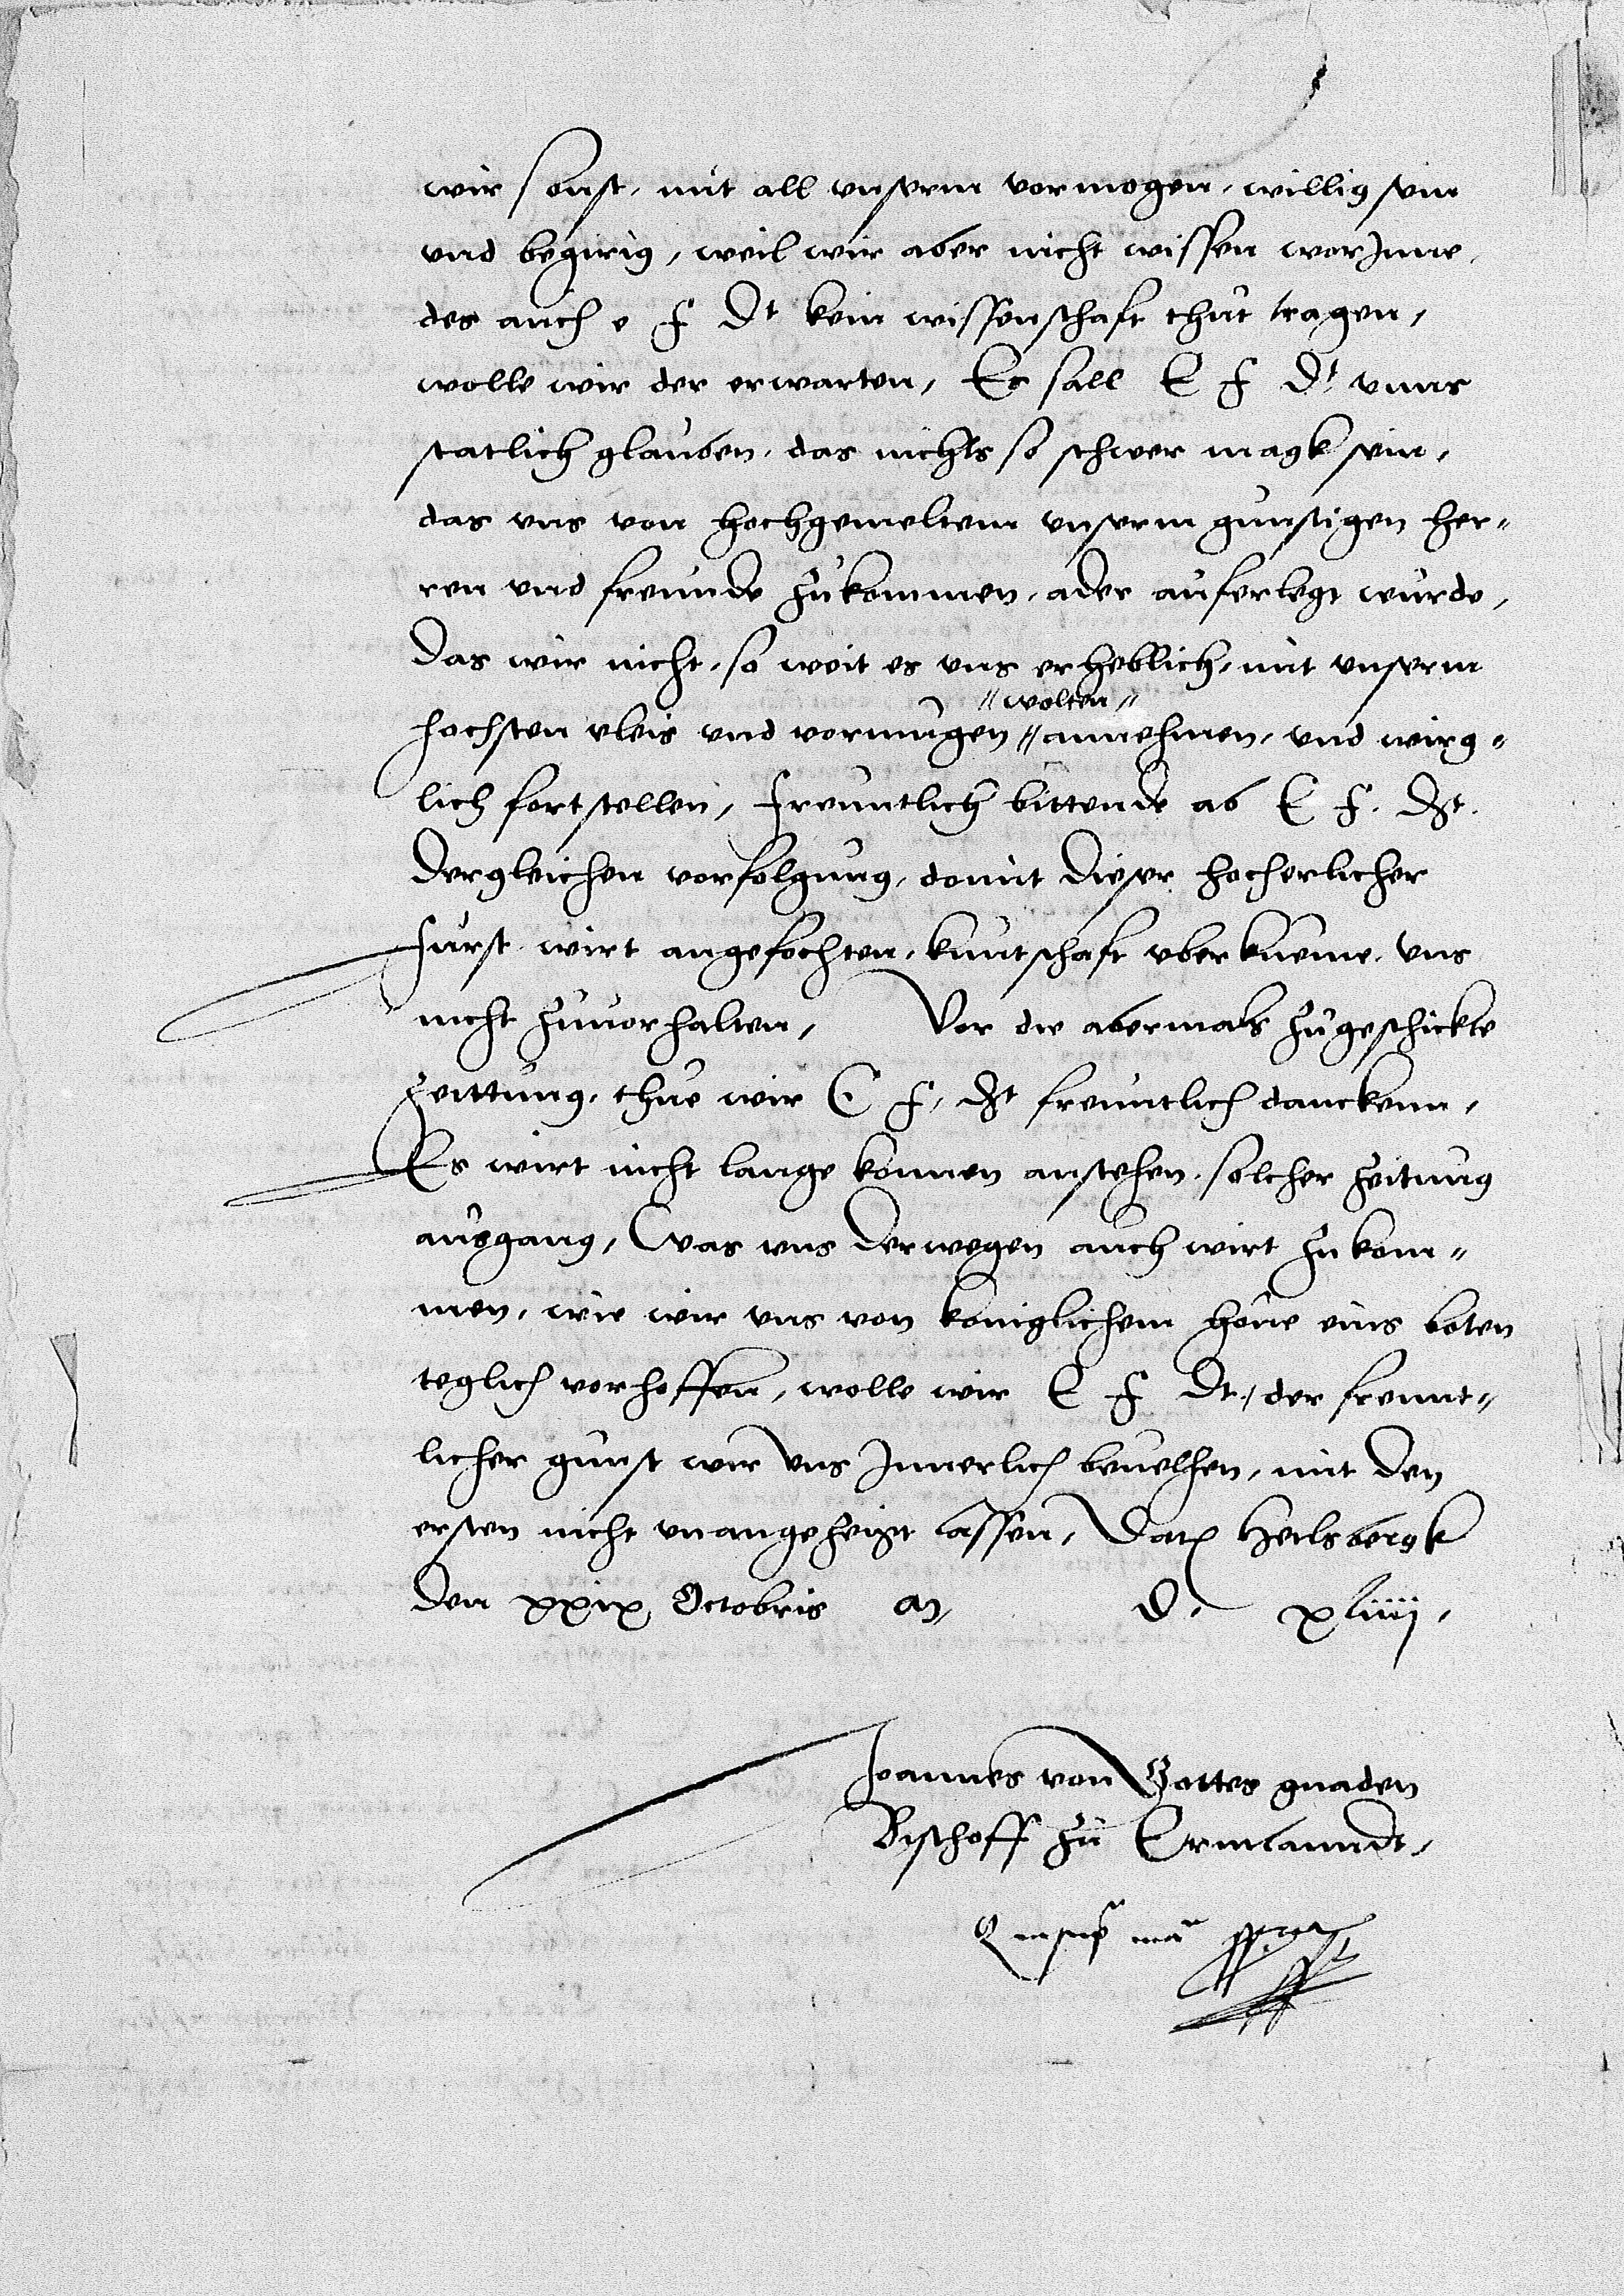 wir sonst, mit all unserm vormogen, willig sein
und begirig, weil wir aber nicht wissen worJnne,
des auch e f Dt kein wissenschaft thut tragen,
wolle wir der erwarten, Es sall E F Dt unns
statlich glauben, das nichts so schwer magk sein,
das uns von hochgemeltem unserm gunstigen her„
ren und freunde zukommen, ader auferlegt wurde,
Das wir nicht, so weit es uns erheblich, mit unserm
„wolten„
hochsten vleis und vormugen „ annehmen, und wirg„
lich fortstellen, freuntlich bittende ab E F. Dt.
Dergleichen vorfolgung, domit dieser hocherlicher
furst wirt angefochten, kuntschaft uberkueme, uns
nicht zuuorhalten, Vor die abermals zugeschickte
zeittung, thue wir E F, Dt freuntlich danckenn,
Es wirt nicht lange konnen anstehen, solcher zeitung
ausgang, Was uns derwegen auch wirt zukom„
men, wie wir uns von koniglichem houe eins boten
teglich vorhoffen, wolle wir E F Dt, der freunt„
licher gunst wir uns Jnnerlich beuelhen, mit den
ersten nicht unangezeigt lassen, Dat Heilsbergk
den xxix Octobris an, D. xliiij,
Joannes von Gottes gnaden
Bischoff zu Ermlanndt,